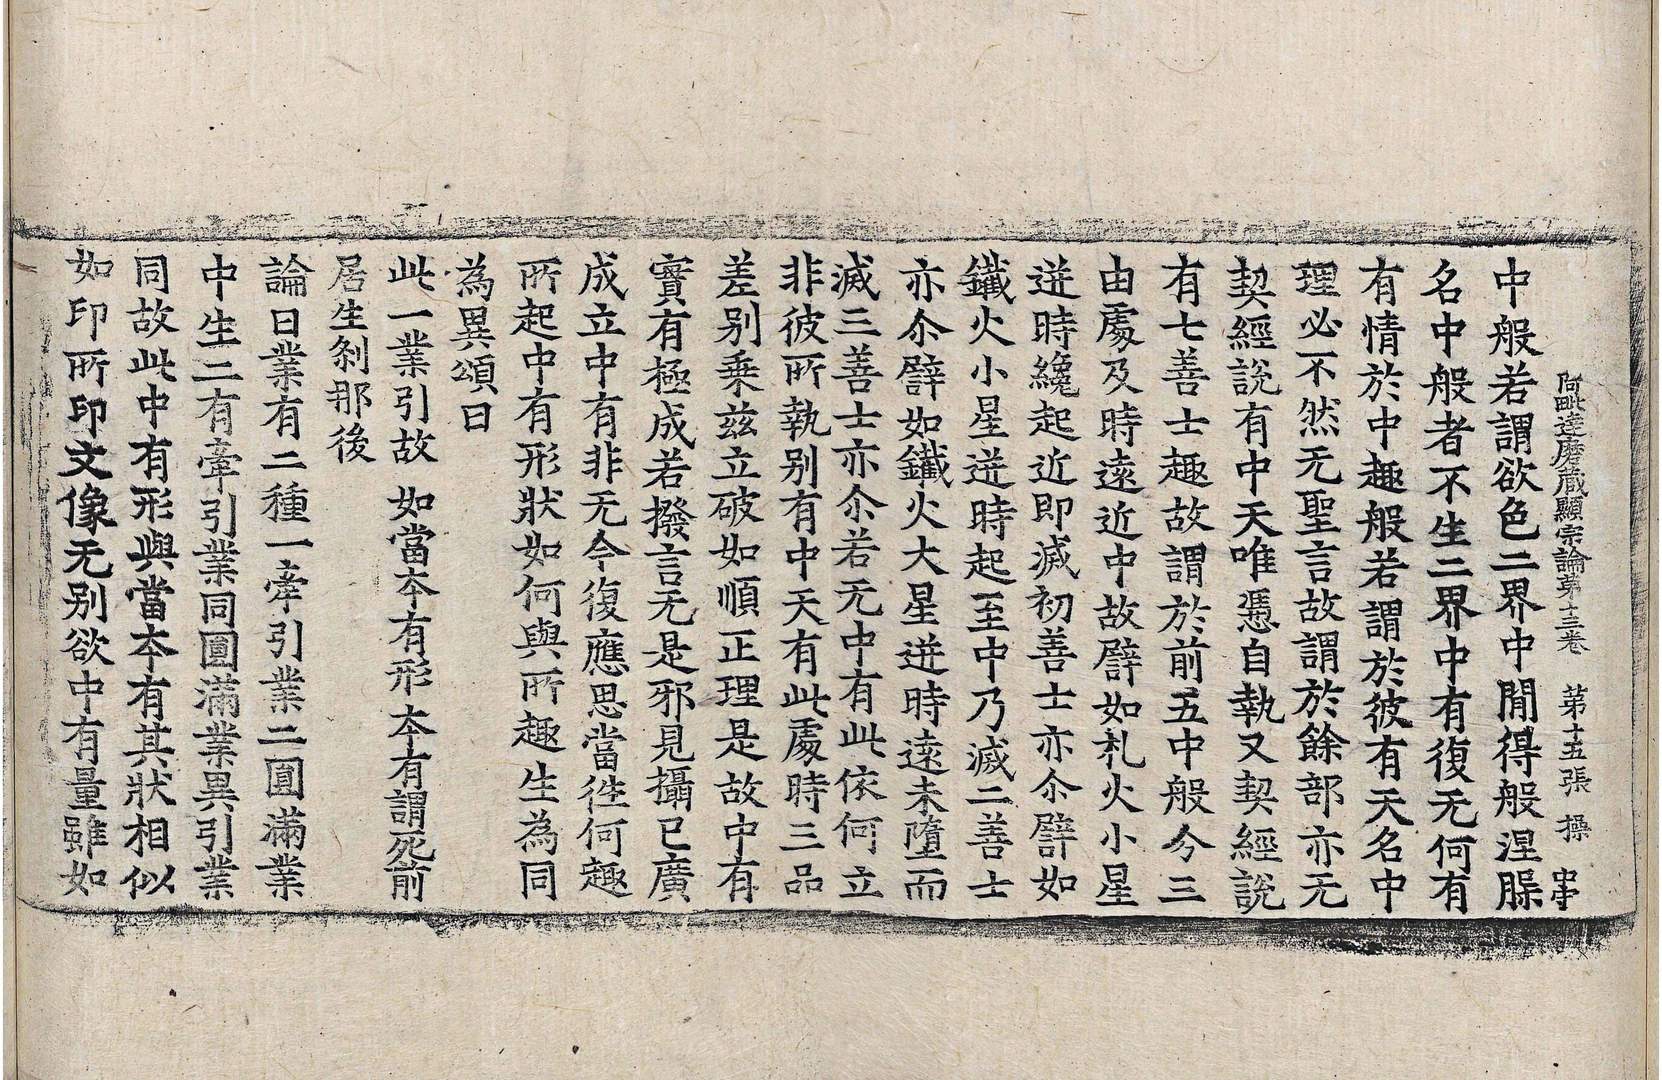 阿毗達磨藏顯宗論第十三卷 第十五張 操
中般若謂欲色二界中間得般涅槃
名中般者不生二界中有復无何有
有情於中趣般若謂於彼有天名中
理必不然无聖言故謂於餘部亦无
契經說有中天唯憑自執又契經說
有七善士趣故謂於前五中般分三
由處及時遠近中故譬如札火小星
迸時纔起近即滅初善士亦尒譬如
鐵火小星迸時起至中乃滅二善士
亦尒譬如鐵火大星迸時遠未墮而
滅三善士亦尒若无中有此依何立
非彼所執别有中天有此處時三品
差别乘兹立破如順正理是故中有
實有極成若撥言无是邪見攝已廣
成立中有非无今復應思當往何趣
所起中有形狀如何與所趣生為同
為異頌曰
此一業引故 如當本有形 本有謂死前
居生刹那後
論曰業有二種一牽引業二圓滿業
中生二有牽引業同圓滿業異引業
同故此中有形與當本有其狀相似
如印所印文像无别欲中有量雖如